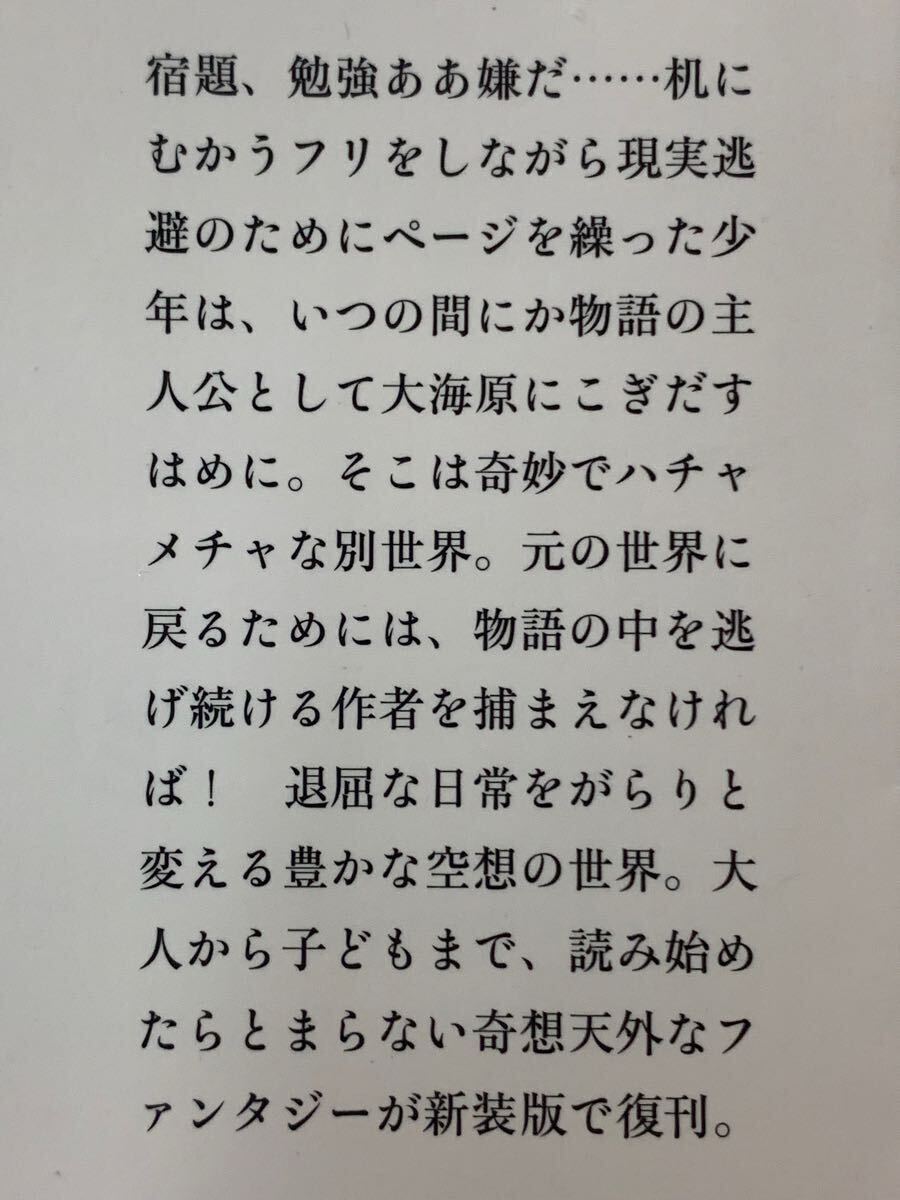 宿題、勉強ああ嫌だ……机に
むかうフリをしながら現実逃
避のためにページを繰った少
年は、いつの間にか物語の主
人公として大海原にこぎだす
はめに。そこは奇妙でハチャ
メチャな別世界。元の世界に
戻るためには、物語の中を逃
げ続ける作者を捕まえなけれ
ば！　退屈な日常をがらりと
変える豊かな空想の世界。大
人から子どもまで、読み始め
たらとまらない奇想天外なフ
ァンタジーが新装版で復刊。